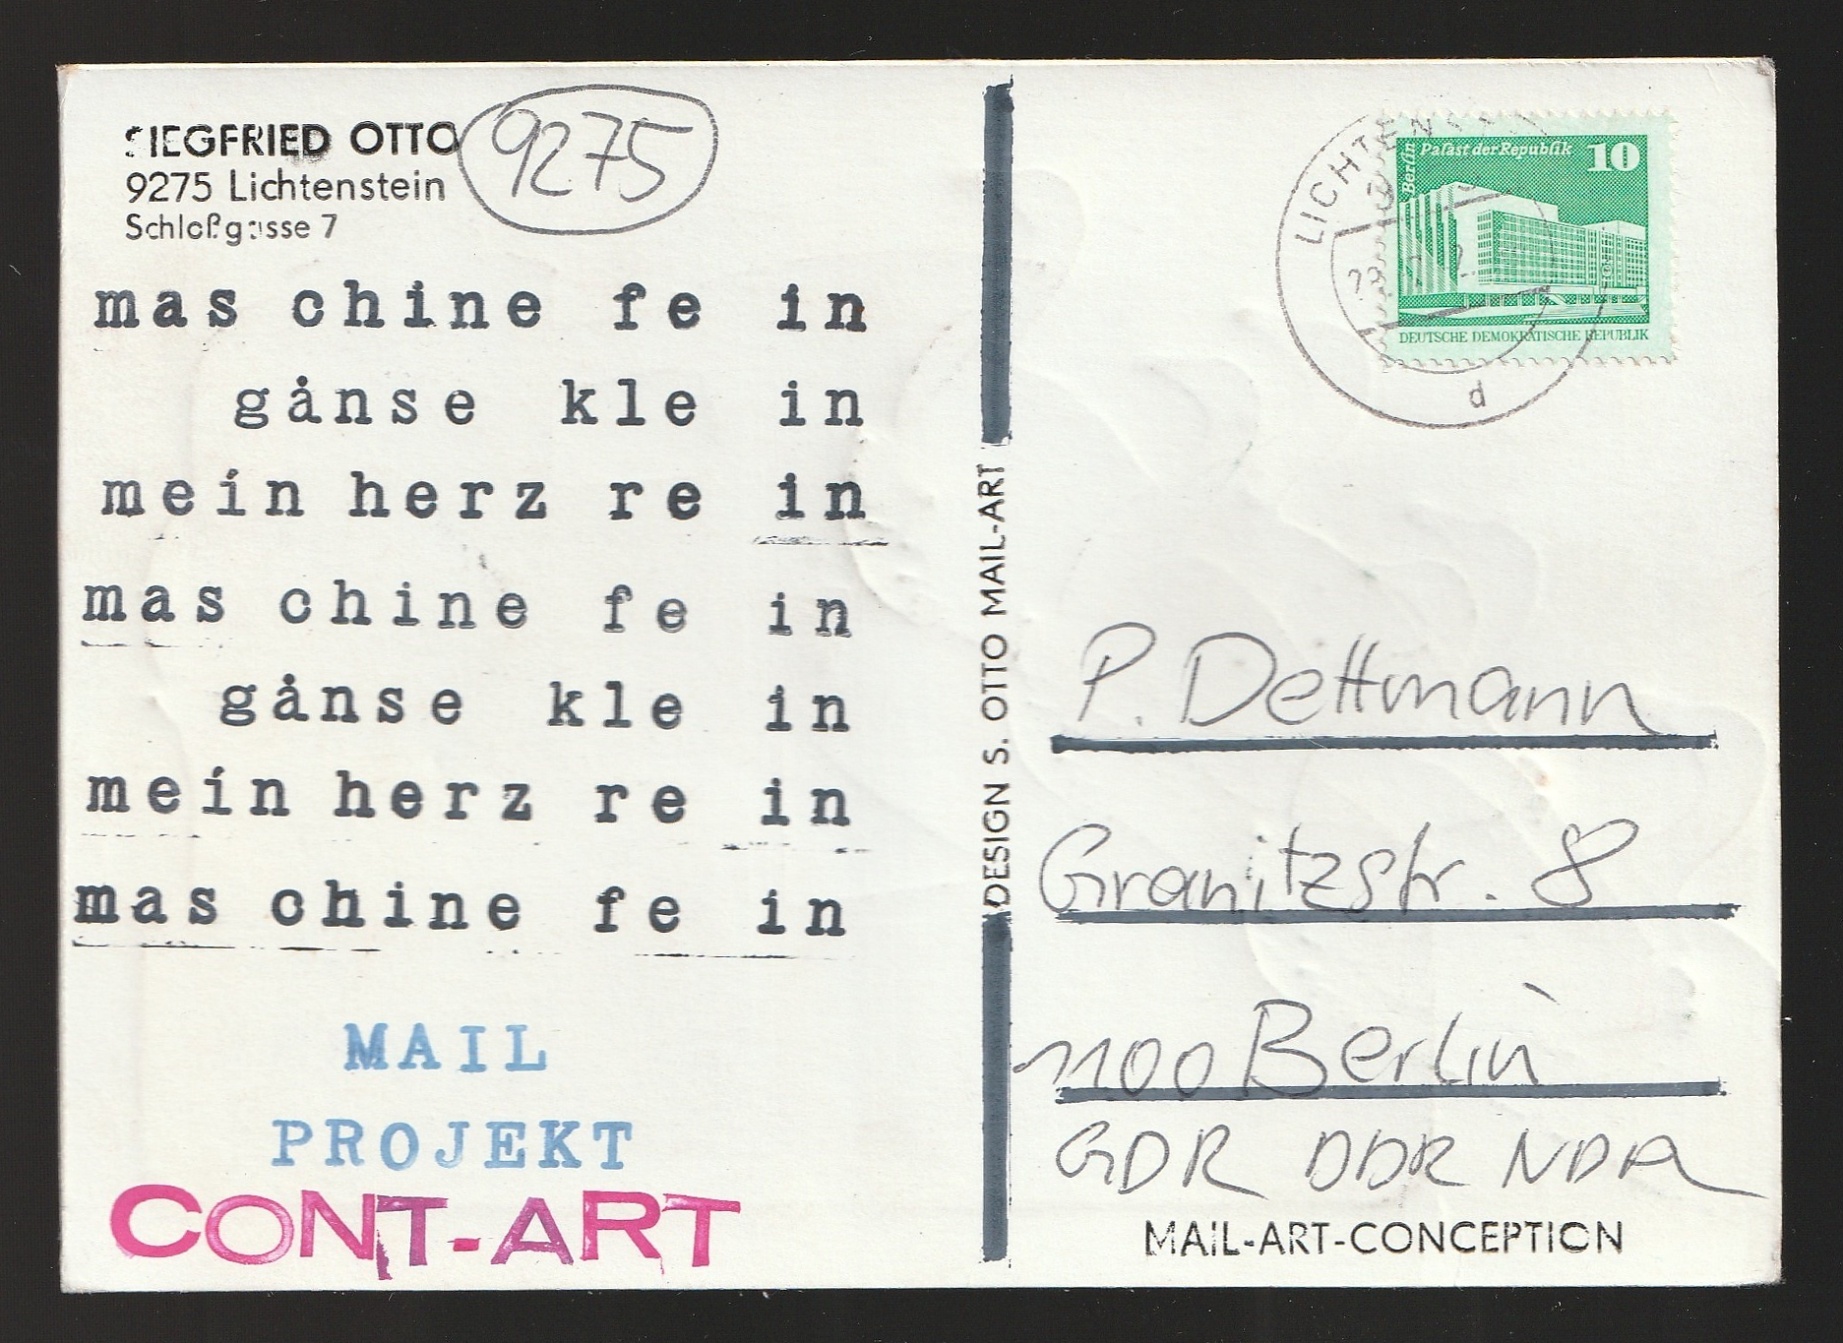 SIEGFRIED OTTO
9275
9275 Lichtenstein
Schloßgasse 7
mas chine fe in
gånse kle in
mein herz re in
mas chine fe in
gånse kle in
mein herz re in
mas chine fe in
MAIL
PROJEKT
CONT-ART
DESIGN S. OTTO MAIL-ART
Berlin
Palast der Republik 10
DEUTSCHE DEMOKRATISCHE REPUBLIK
d
P. Dettmann
Granitzstr. 8
1100 Berlin
GDR DDR NDR
MAIL-ART-CONCEPTION